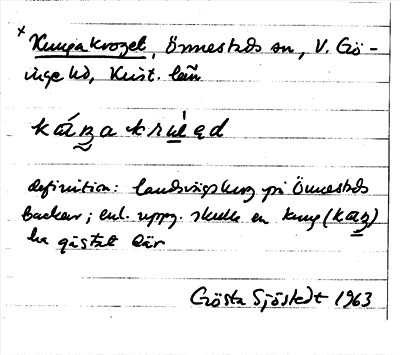 x Kungakroget, Önnestads sn, V. Gö-
inge hd, Krist. län
definition: landsvägskrog på Önnestads
backar; enl. uppg. skulle en kung
ha gästat där
Gösta Sjöstedt 1963